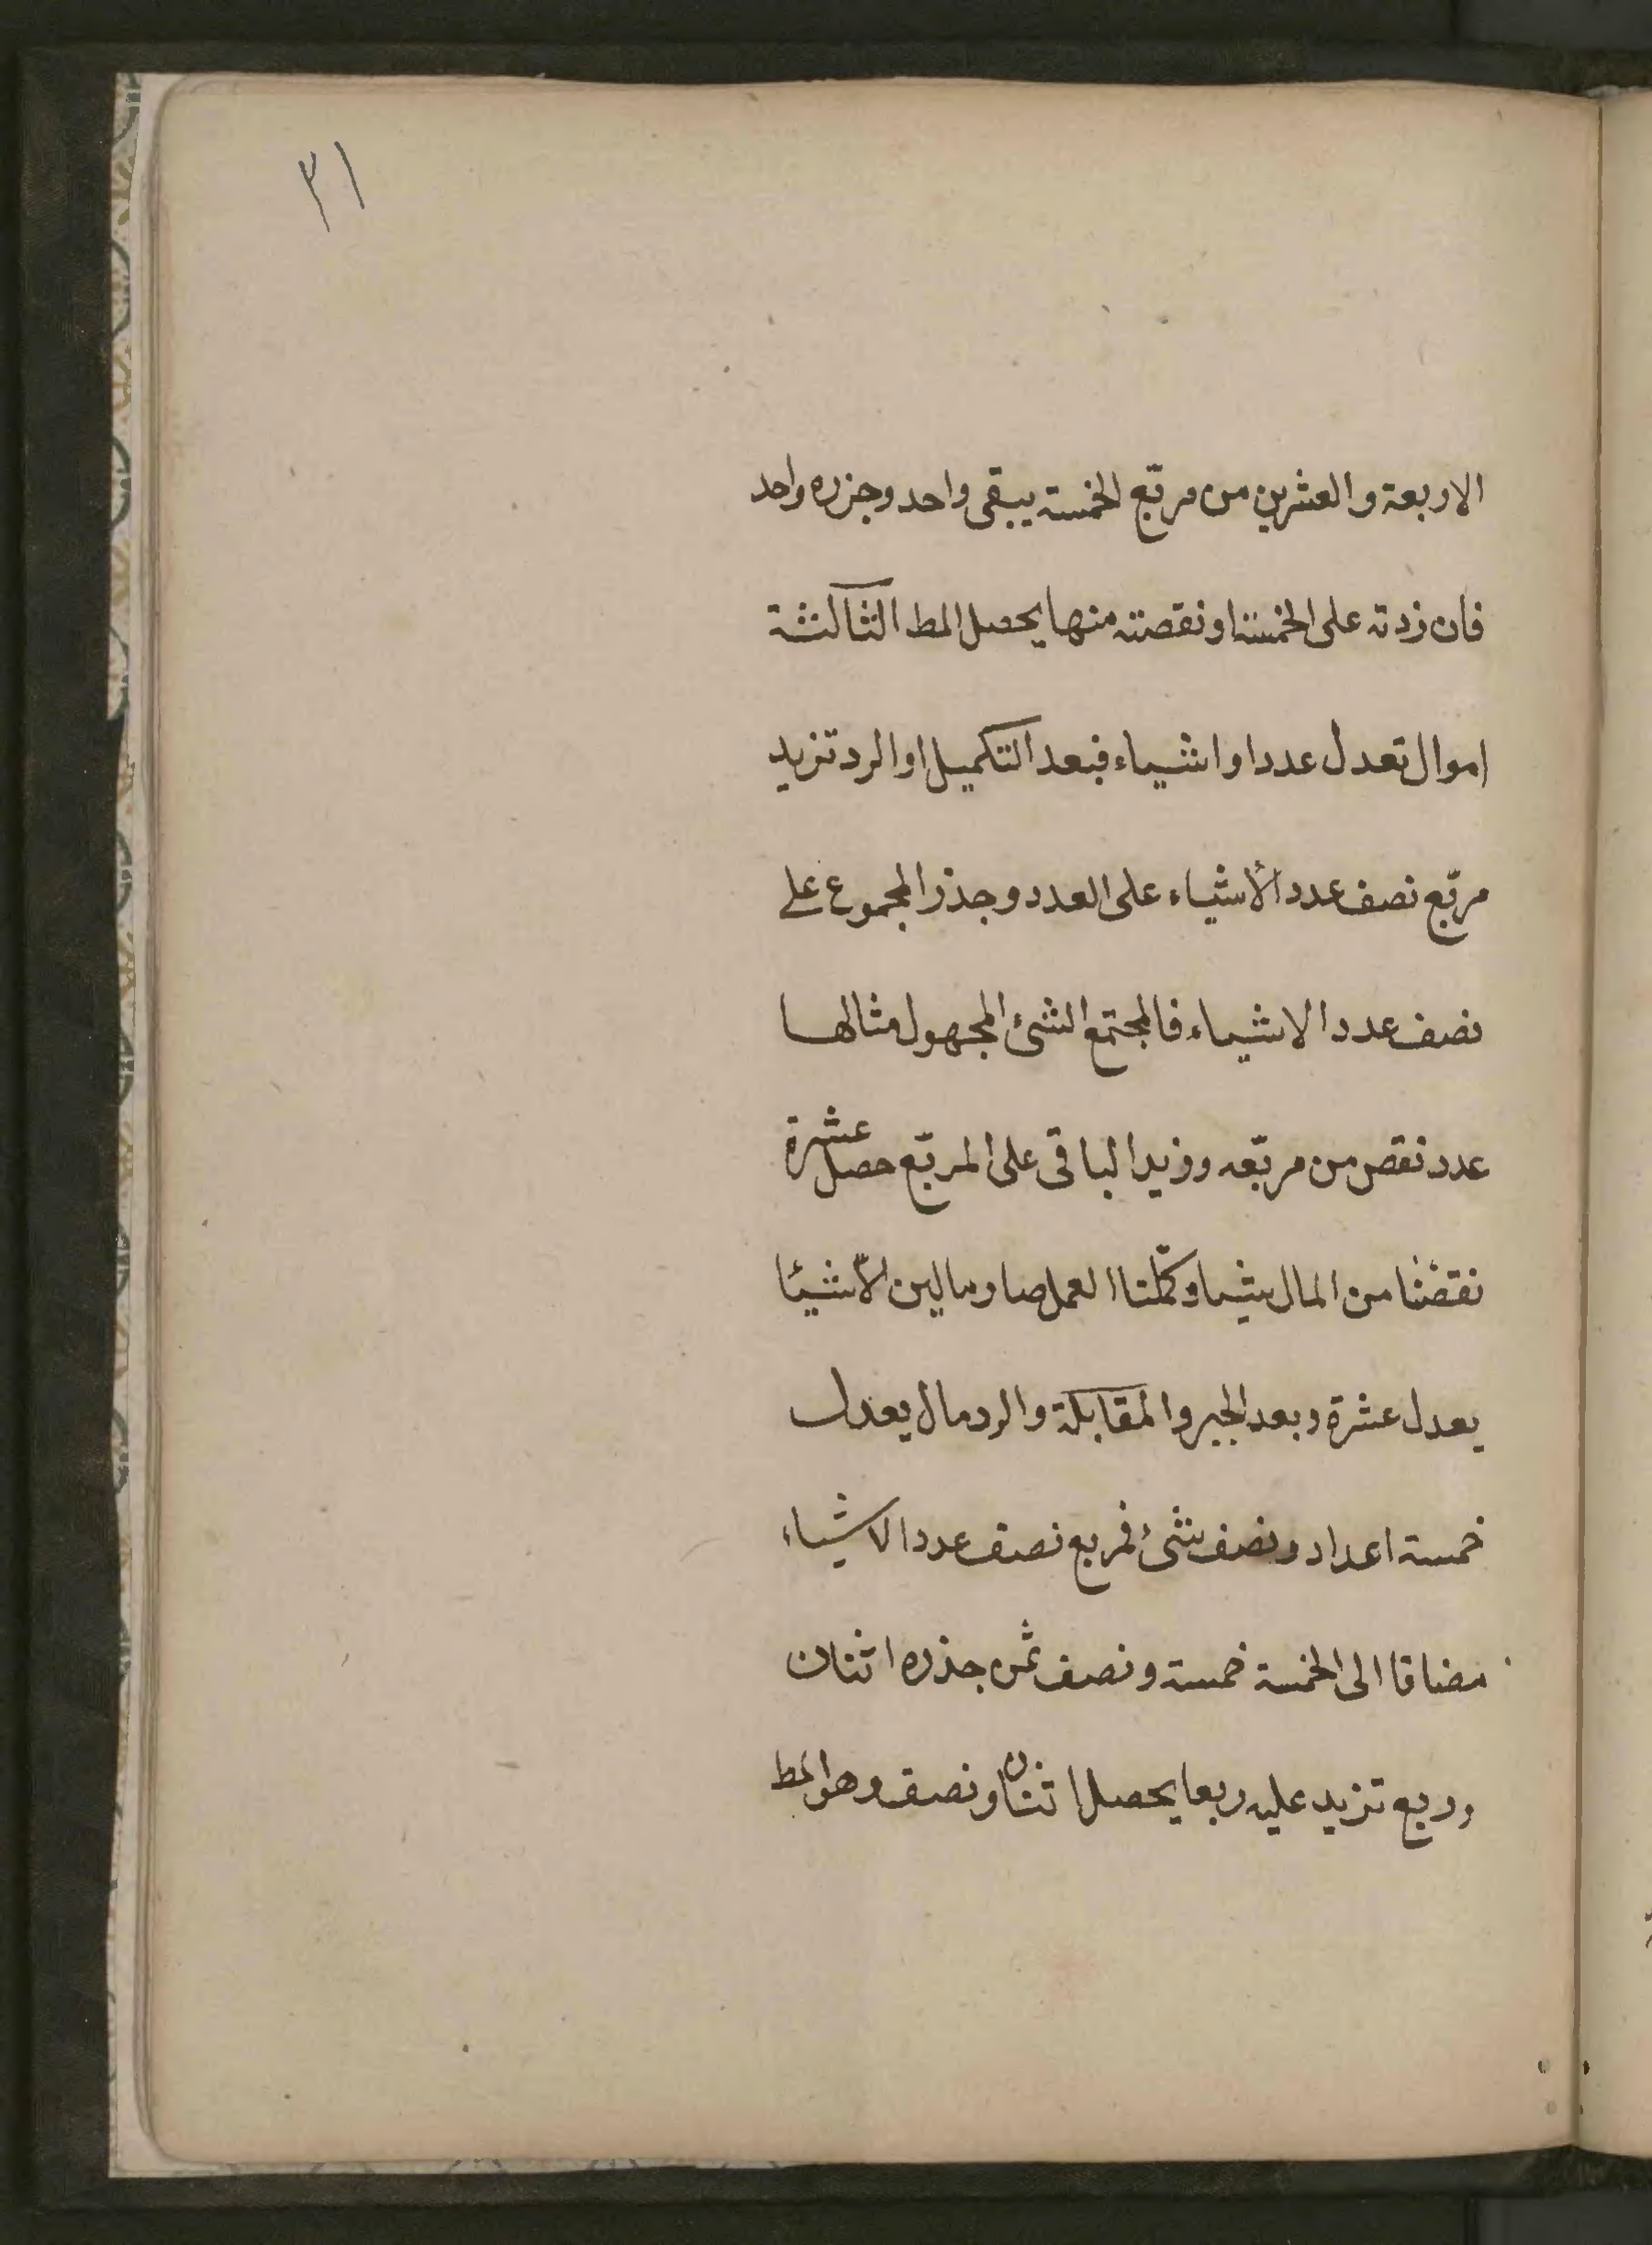 ٣١
الاربعة والعشرين من مربّع الخمسة يبقى واحد وجزره واحد
فان زدته على الخمسة او نقصته منها يحصل المط الثالثة
اموال تعدل عددا واشياء فبعد التكميل او الرد تزيد
مربّع نصف عدد الأشياء على العدد وجذر المجموع على
نصف عدد الاشياء فالمجتمع الشئ المجهول مثالها
عدد نقص من مربّعه وزيد الباقى على المربّع حصل عشرة
نقصنا من المال شيا وكمّلنا العمل صار مالين الّا شيئا
يعدل عشرة وبعد الجبر والمقابلة والرد مال يعدل
خمسة اعداد ونصف شئ فمربع نصف عدد الاشياء
مضافا الى الخمسة خمسة ونصف ثمن جذره اثنان
وربع تزيد عليه ربعا يحصل اثنان ونصف وهو المط